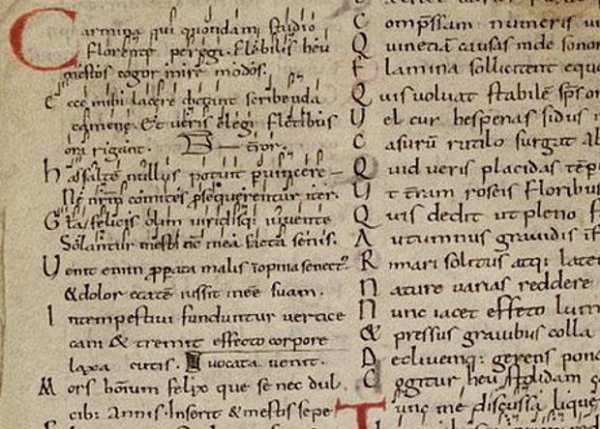 Carmina qui quondam studio
florente peregi. Flebilis heu
mestos cogor inire modos.
Ecce mihi lacere dictant scribenda
camene. Et veris elegi fletibus
ora rigant. terror.
has saltē nullus potuit pvincere
Ne nrm comites psequerentur iter.
Gła felicis olim viridisq; iuvente
Solantur mesti nc mea facta senis.
Venit enim ppata malis inopina senect9
& dolor etatē iussit inēe suam.
Intempestivi funduntur vertice
cani & tremit effecto corpore
laxa cutis. vocata venit.
Mors hōinum felix que se nec dul
cib; Annis. Inserit & mestis sepe
Comp̄ssam numeris vi
Quinetiā causas inde sonor
Flamina sollicitent equo
Quis volvat stabilē sps or
Vel cur hesperias sidus
Casurū rutilo surgat ab
Quid veris placidas tēp
Ut t̄ram roseis floribus
Quis dedit ut pleno f
Autumnus gravidis īf
Rimari solitus atq; later
Nature varias reddere
Nunc iacet effeto lum
& pressus gravibus colla
Declivemq; gerens pond
Cogitur heu stolidam c
Tunc me discussa lique